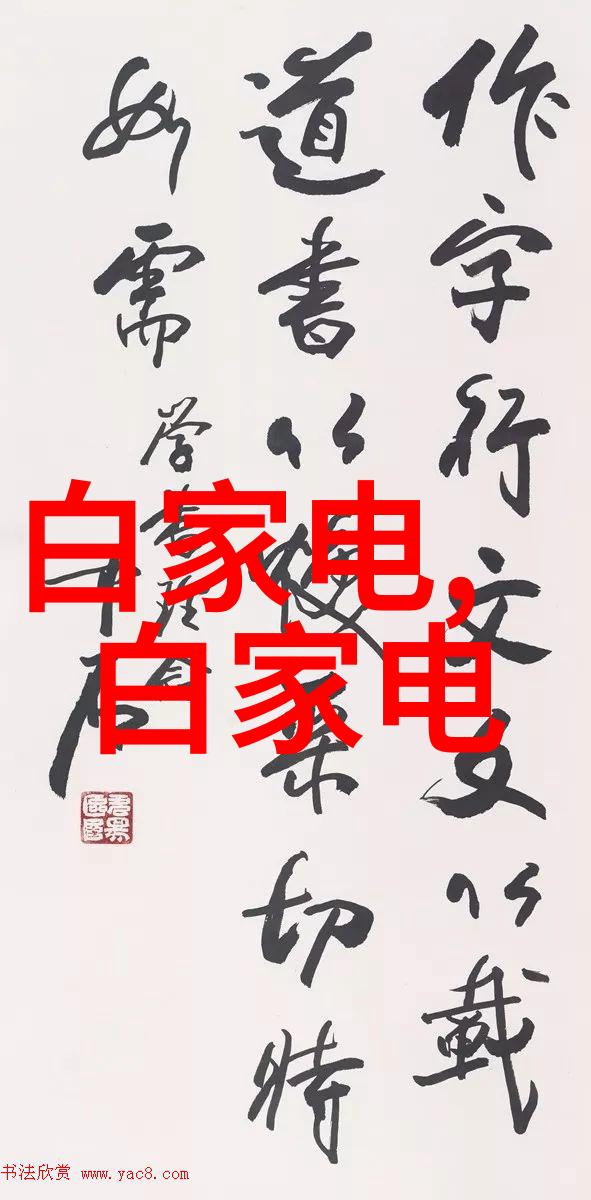 作字行文文以載
道書以焕采切時
如需
学書理念
白家电,
白家电
书法欣赏 www.yac8.com